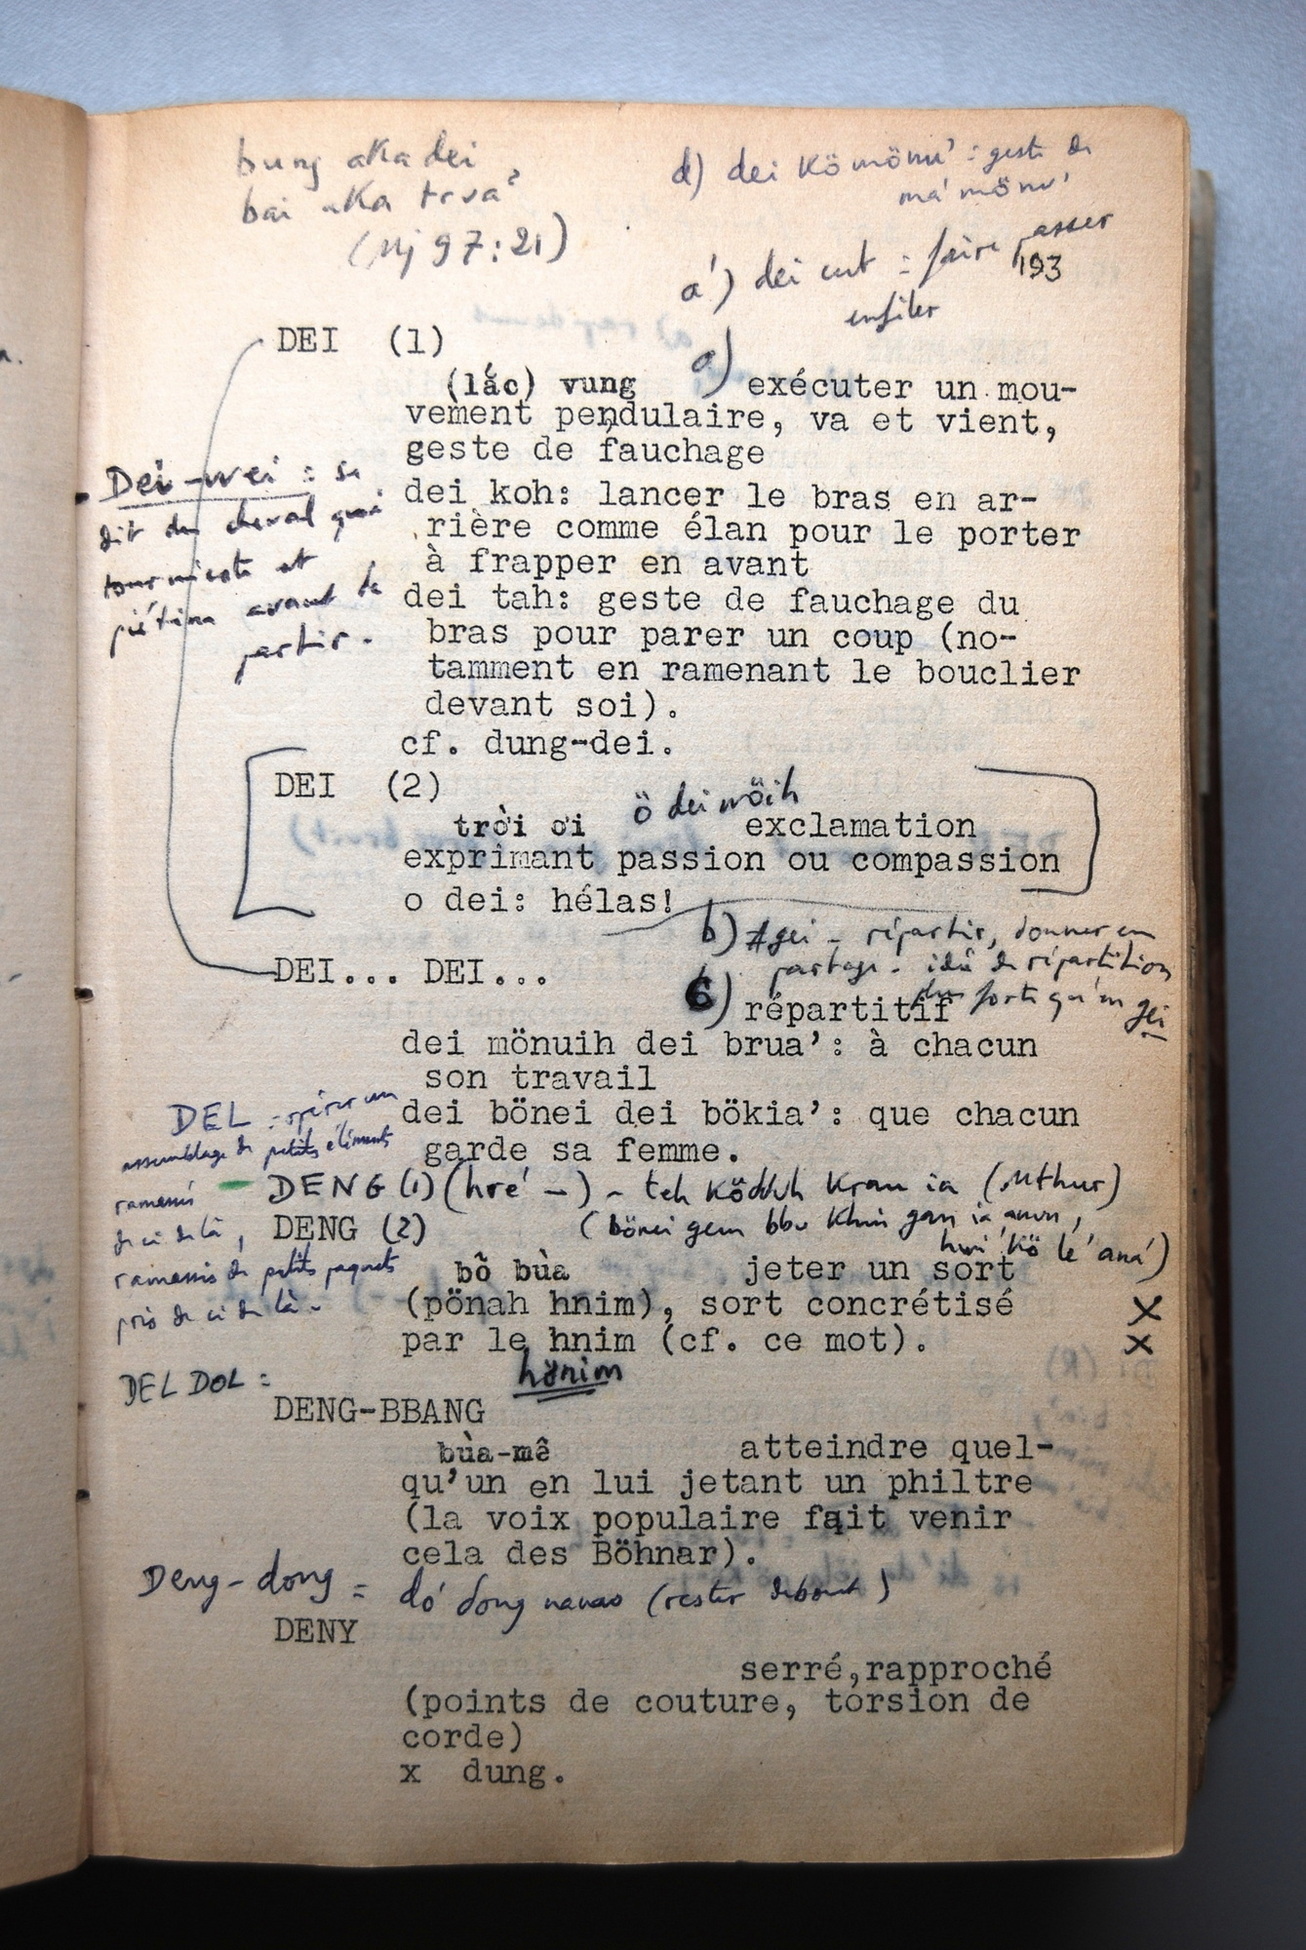 bung aka dei
bai aka trva'
(Mj 97:21)
d) dei kömönu' : geste de
ma' mönu'
a') dei cut : faire passer
enfiler
193
DEI (1)
(lắc) vung a) exécuter un mou-
vement pendulaire, va et vient,
geste de fauchage
dei koh: lancer le bras en ar-
rière comme élan pour le porter
à frapper en avant
dei tah: geste de fauchage du
bras pour parer un coup (no-
tamment en ramenant le bouclier
devant soi).
cf. dung-dei.
Dei-wei : se
dit du cheval qui
tournicote et
piétine avant de
partir.
DEI (2)
ö dei möih
trời ơi exclamation
exprimant passion ou compassion
o dei: hélas!
b) ≠ gei - répartir, donner en
partage. idée de répartition
plus forte qu'en gei
DEI... DEI...
6) répartitif
dei mönuih dei brua': à chacun
son travail
dei bönei dei bökia': que chacun
garde sa femme.
DEL
assemblage de petits éléments
ramassis
de ci de là,
ramassis de petits paquets
pris de ci de là.
DENG (1) (hré -) - teh köduh kran ia (Mthur)
DENG (2)
(bönei gem bbu khin gan ia
lé' aná)
bỏ bùa jeter un sort
(pönah hnim), sort concrétisé X
par le hnim (cf. ce mot). X
hönim
DEL DOL :
DENG-BBANG
bùa-mê atteindre quel-
qu'un en lui jetant un philtre
(la voix populaire fait venir
cela des Böhnar).
Deng-dong = dó' dong nanao (rester debout)
DENY
serré,rapproché
(points de couture, torsion de
corde)
x dung.